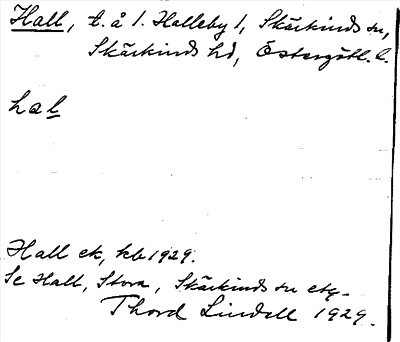 Hall, t. å l. Halleby l, Skärkinds sn,
Skärkinds hd, Östergötl. l.
hal
Hall ek, kb 1929.
Se Hall, Stora, Skärkinds sn etc.
Thord Lindell 1929.